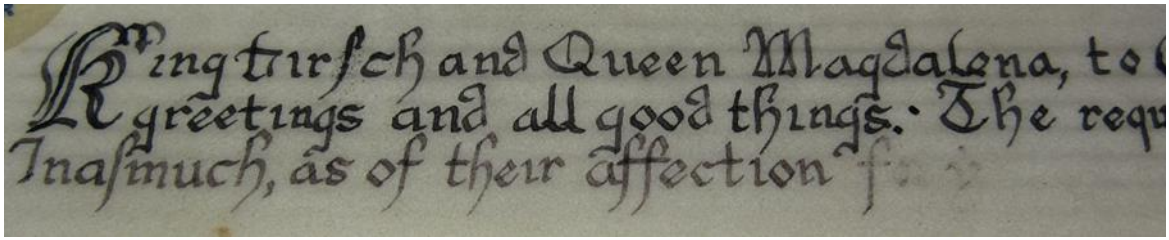 King Hirſch and Queen Magdalena, to
greetings and all good things. The requ
Inaſmuch, as of their affection